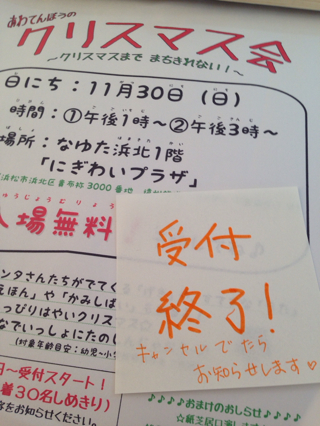 あわてんぼうの
クリスマス会
～クリスマスまで まちきれない！～
日にち：11月30日（日）
時間：①午後1時～②午後3時～
場所：なゆた浜北1階
「にぎわいプラザ」
浜松市浜北区貴布祢3000番地
入場無料
受付
終了！
キャンセルでたら
お知らせします♡
ンタさんたちがでてく
えほん」や「かみしば
っぴりはやいクリス
なでいっしょにたのし
（対象年齢目安：幼児～小
～受付スタート！
着30名しめきり）
をお知らせください。
♪♪♪♪おまけのおしらせ♪♪